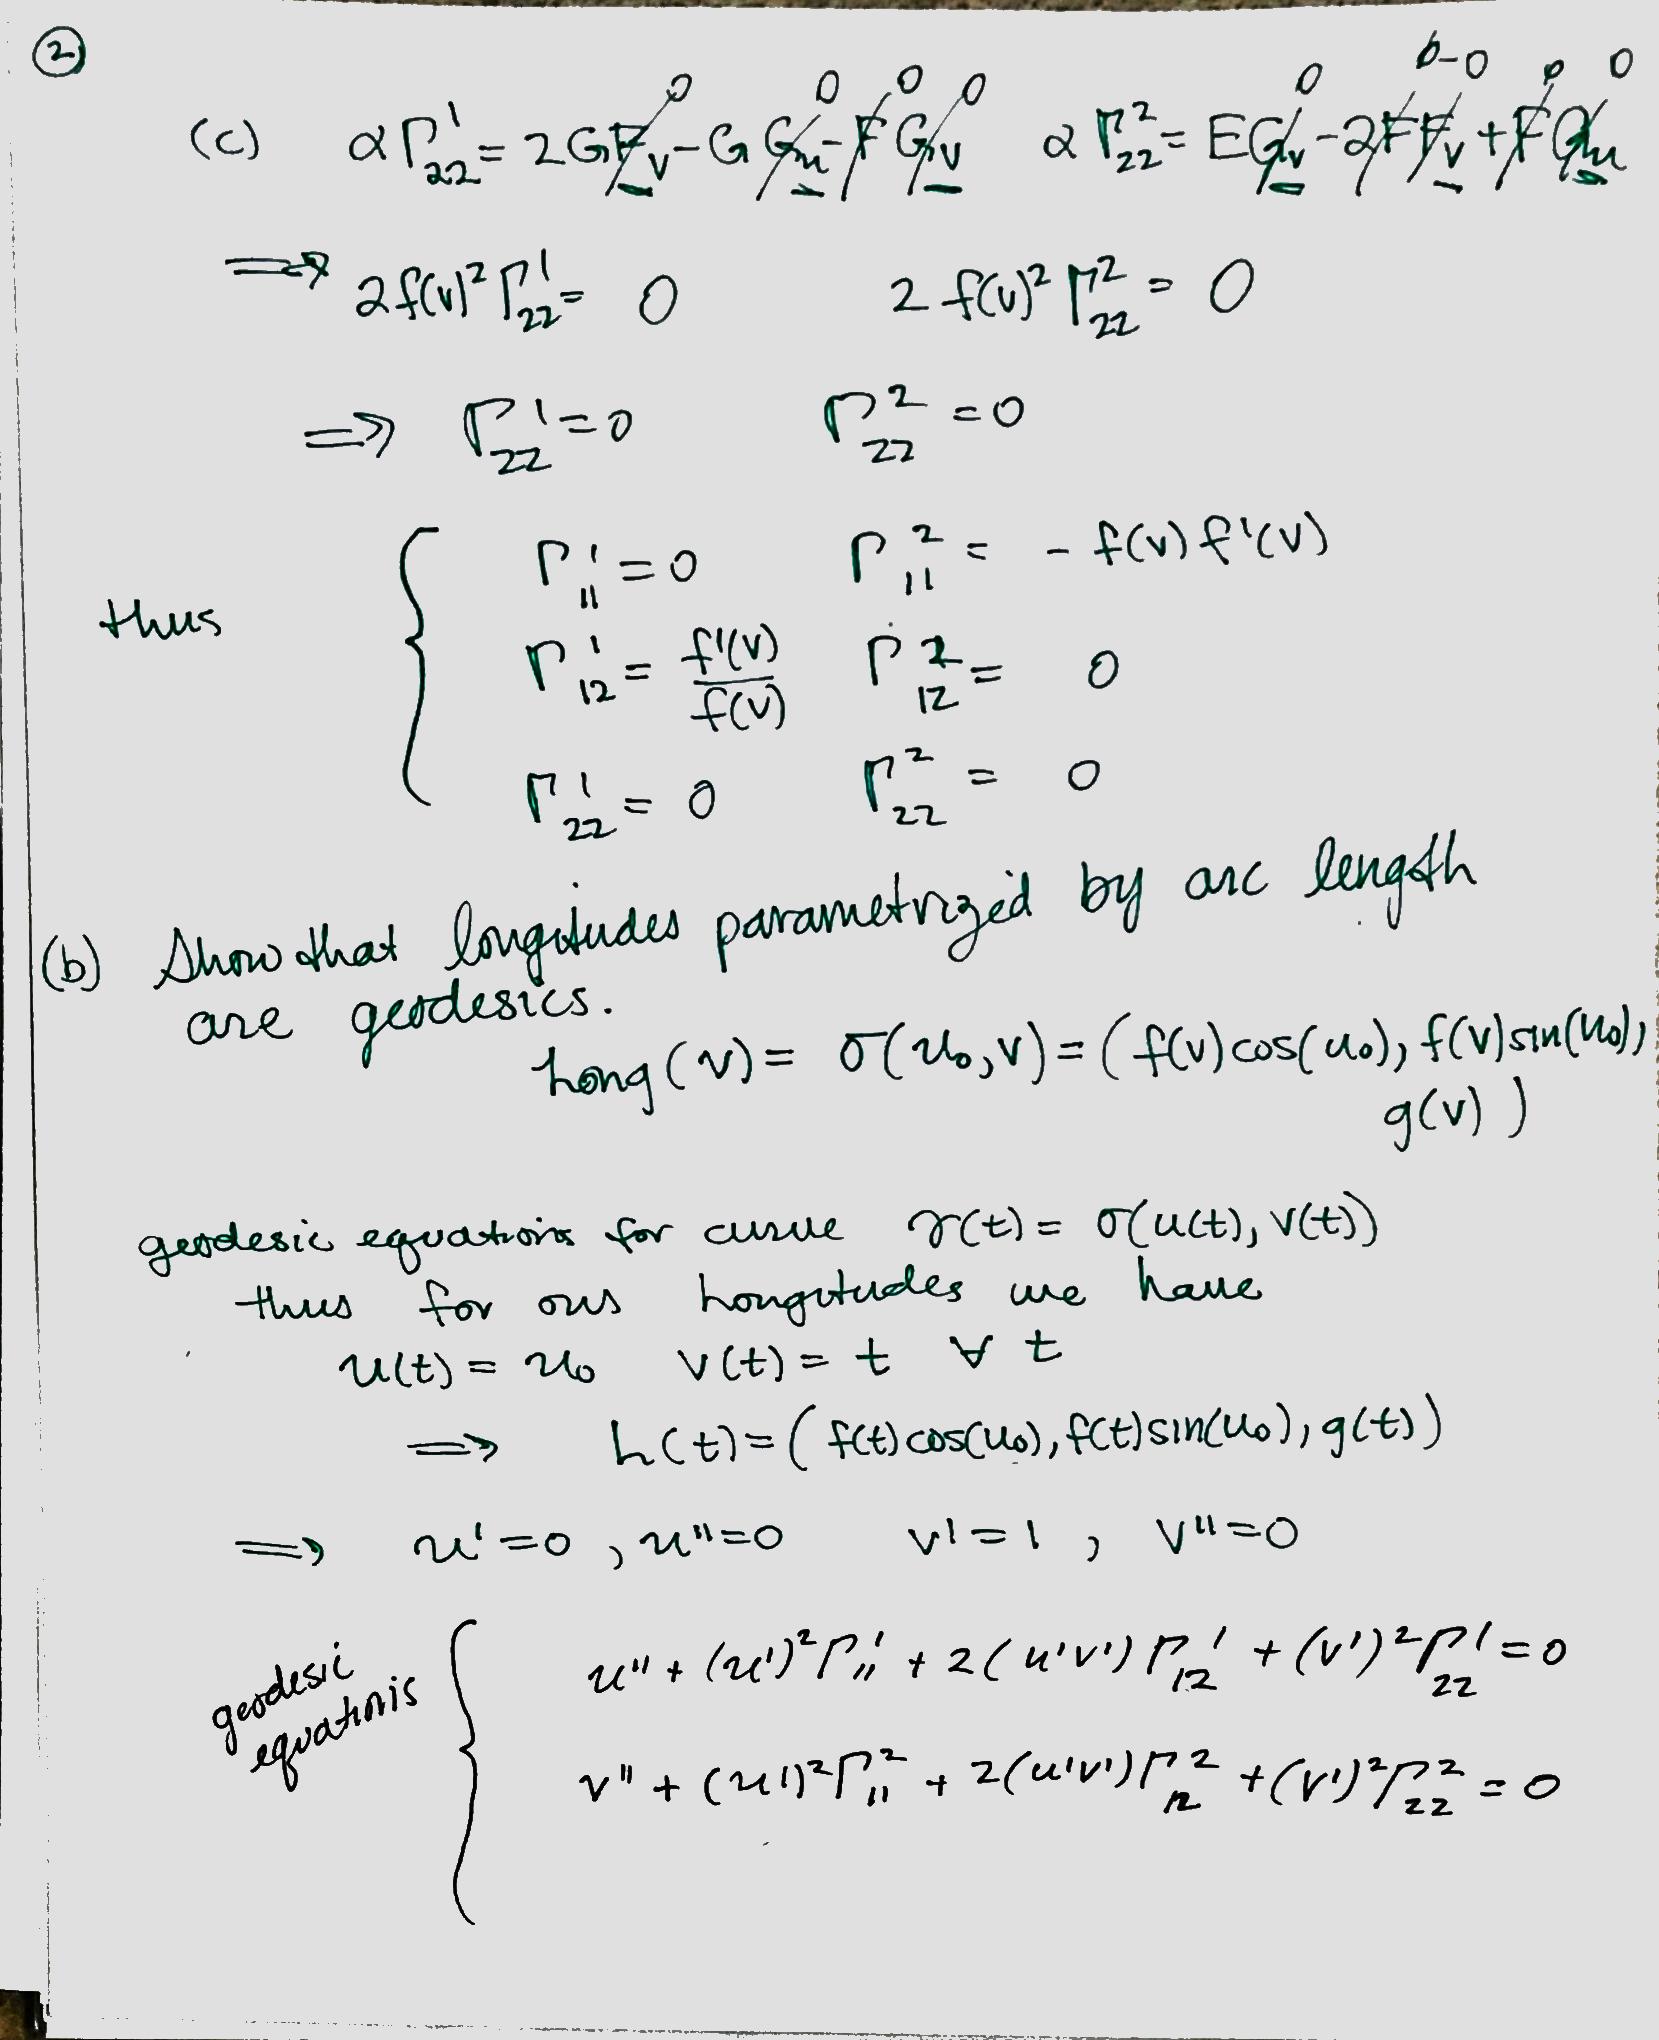 ②
(c) αΓ¹₂₂ = 2GF_v - GG_u - FG_v   αΓ²₂₂ = EG_v - 2FF_v + FG_u
0 0 0 0 0 0-0 0 0
⟹ 2f(v)²Γ¹₂₂ = 0   2f(v)²Γ²₂₂ = 0
⟹ Γ¹₂₂ = 0   Γ²₂₂ = 0
Γ¹₁₁ = 0   Γ²₁₁ = - f(v) f'(v)
thus { Γ¹₁₂ = f'(v)/f(v)   Γ²₁₂ = 0
Γ¹₂₂ = 0   Γ²₂₂ = 0
(b) Show that longitudes parametrized by arc length
are geodesics.
long(v) = σ(u₀,v) = (f(v)cos(u₀), f(v)sin(u₀),
g(v))
geodesic equations for curve γ(t) = σ(u(t), v(t))
thus for our longitudes we have
u(t) = u₀   v(t) = t   ∀ t
⟹ L(t) = (f(t)cos(u₀), f(t)sin(u₀), g(t))
⟹ u' = 0, u'' = 0   v' = 1, v'' = 0
geodesic equations { u'' + (u')²Γ¹₁₁ + 2(u'v')Γ¹₁₂ + (v')²Γ¹₂₂ = 0
v'' + (u')²Γ²₁₁ + 2(u'v')Γ²₁₂ + (v')²Γ²₂₂ = 0